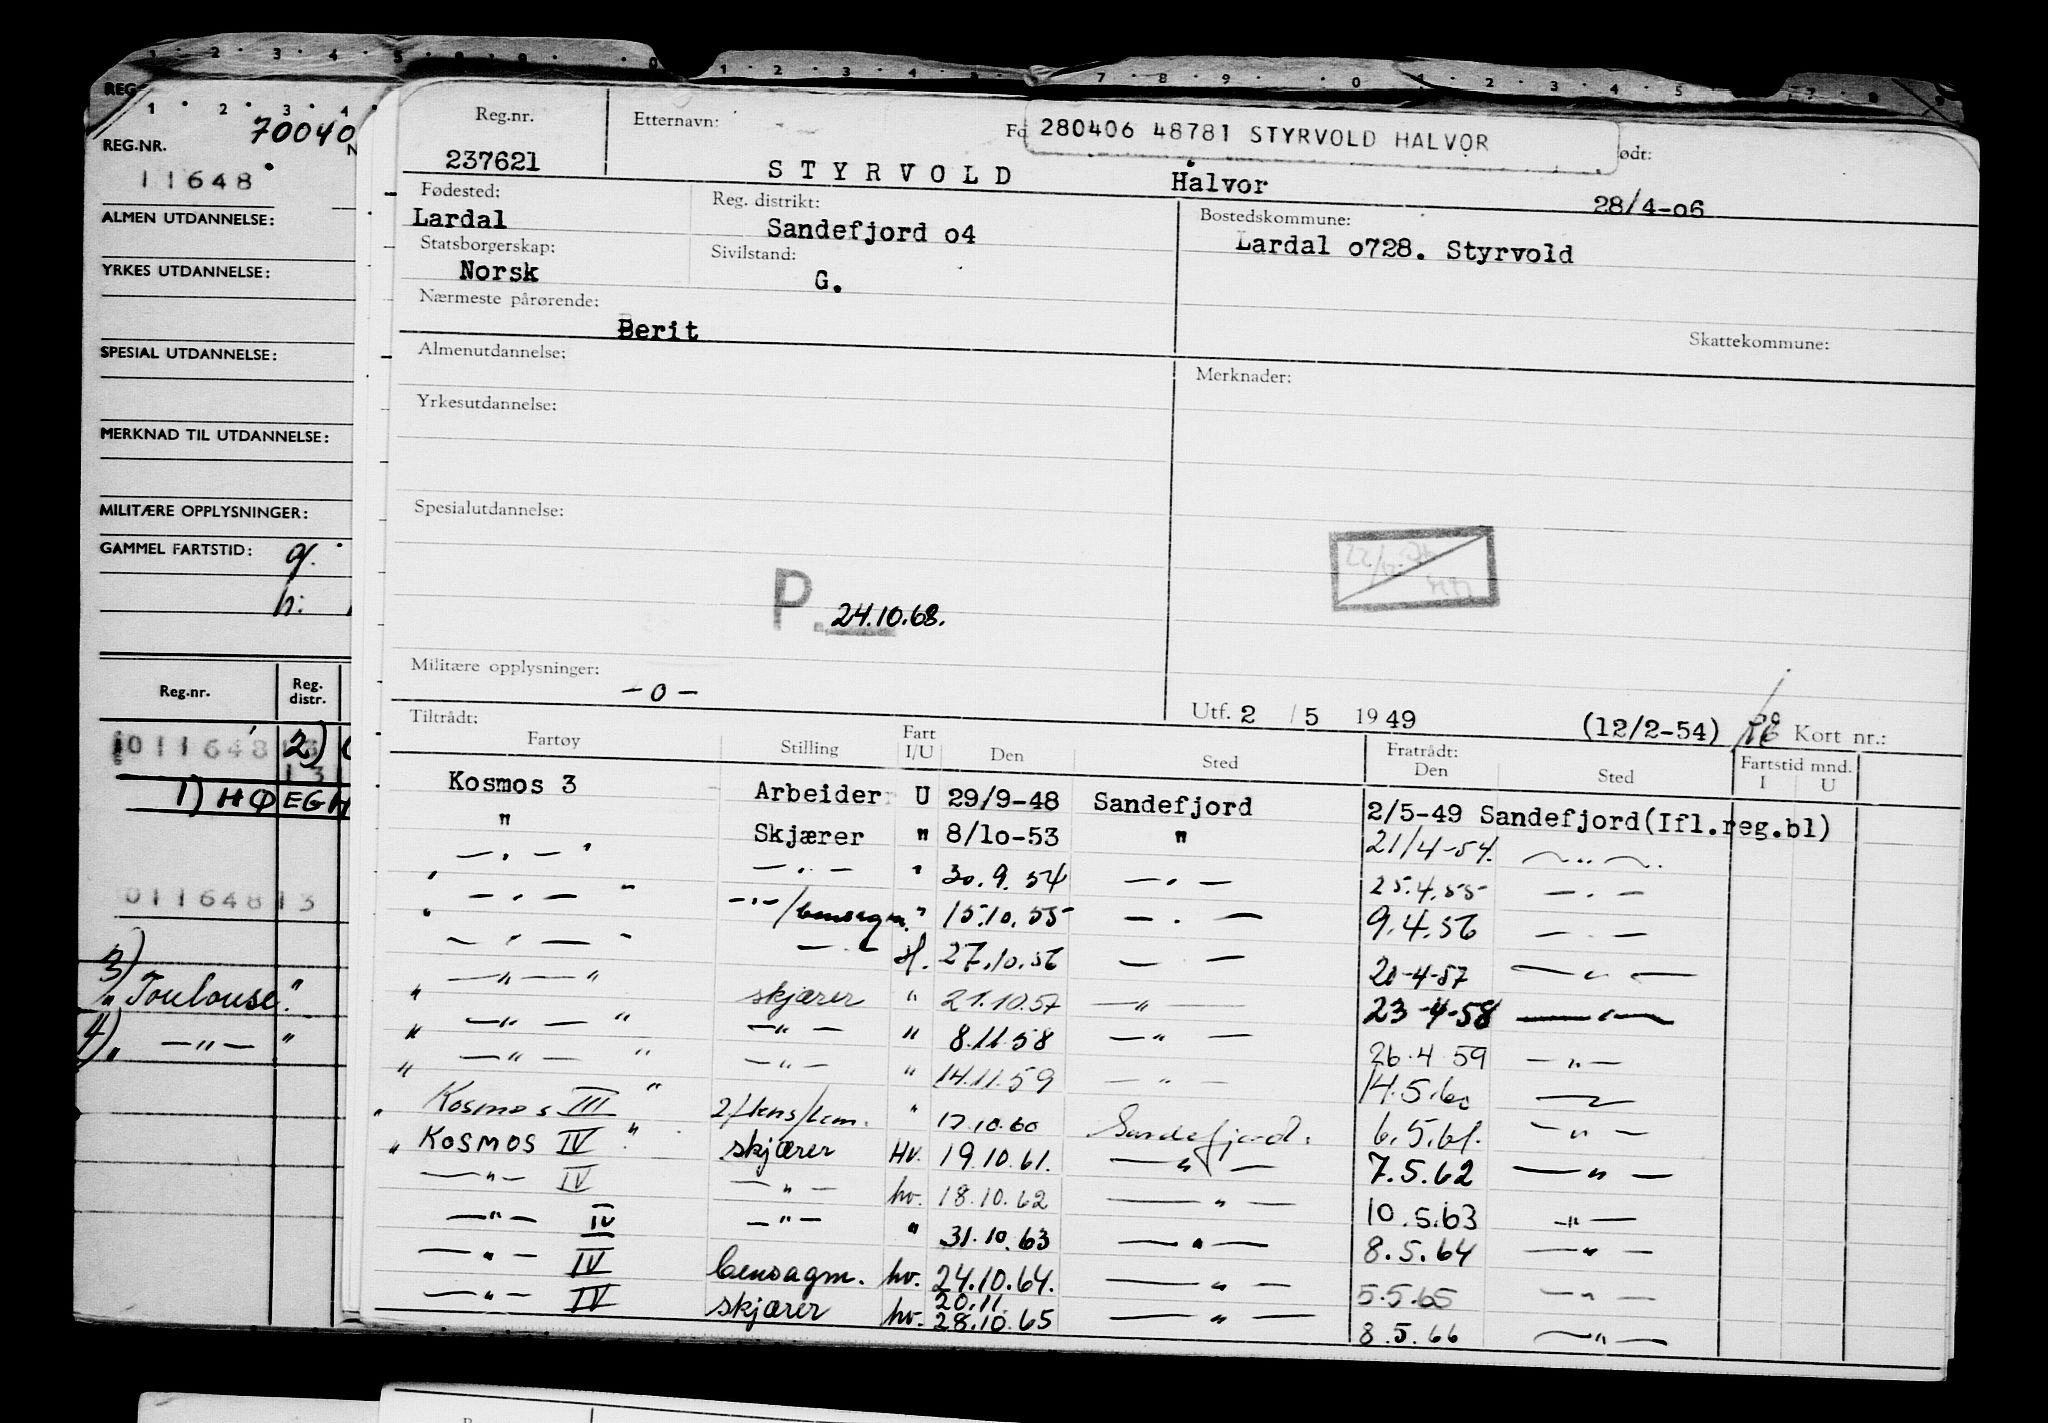 1 · 2 · 3 · 4 · 5
REG
1 · 2 · 3 · 4
REG.NR. 70040
11648
ALMEN UTDANNELSE:
YRKES UTDANNELSE:
SPESIAL UTDANNELSE:
MERKNAD TIL UTDANNELSE:
MILITÆRE OPPLYSNINGER:
GAMMEL FARTSTID: g.
h:
Reg.nr. Reg. distr.
011648 13 2)
13
1) HØEGH
01164813
3)
" Toulouse "
4) " —"— "
Reg.nr. Etternavn: 280406 48781 STYRVOLD HALVOR ødt:
237621 STYRVOLD Halvor 28/4-o6
Fødested: Reg. distrikt: Bostedskommune:
Lardal Sandefjord o4 Lardal o728. Styrvold
Statsborgerskap: Sivilstand:
Norsk G.
Nærmeste pårørende: Skattekommune:
Berit
Almenutdannelse: Merknader:
Yrkesutdannelse:
Spesialutdannelse:
P. 24.10.68.
Militære opplysninger:
-o-
Utf. 2 / 5 1949 (12/2-54) Kort nr.:
Tiltrådt: Fartøy Stilling Fart I/U Den Sted Fratrådt: Den Sted Fartstid mnd. I U
Kosmos 3 Arbeider U 29/9-48 Sandefjord 2/5-49 Sandefjord(Ifl.reg.bl)
" Skjærer " 8/1o-53 " 21/4-54. —"—
— " — " — " — " 30.9.54 — " — 25.4.55 — " —
" — " — " — " — / " 15.10.55 — " — 9.4.56 — " —
" — " — " — " — 27.10.56 — " — 20-4-57 — " —
— " — " skjærer " 21.10.57 — " — 23-4-58 — " —
" — " — " — " — " 8.11.58 — " — 26.4.59 — " —
" — " — " — " — " 14.11.59 — " — 14.5.60 — " —
" Kosmos III " " 17.10.60 Sandefjord. 6.5.61. — " —
" KOSMOS IV " skjærer Hv. 19.10.61. — " — 7.5.62 — " —
" — " — IV — " — hv. 18.10.62 — " — 10.5.63 — " —
— " — IV — " — " 31.10.63 — " — 8.5.64 — " —
— " — IV bensagm. hv. 24.10.64. — " — 5.5.65 — " —
— " — IV skjærer hv. 20.11. 28.10.65 — " — 8.5.66 — " —